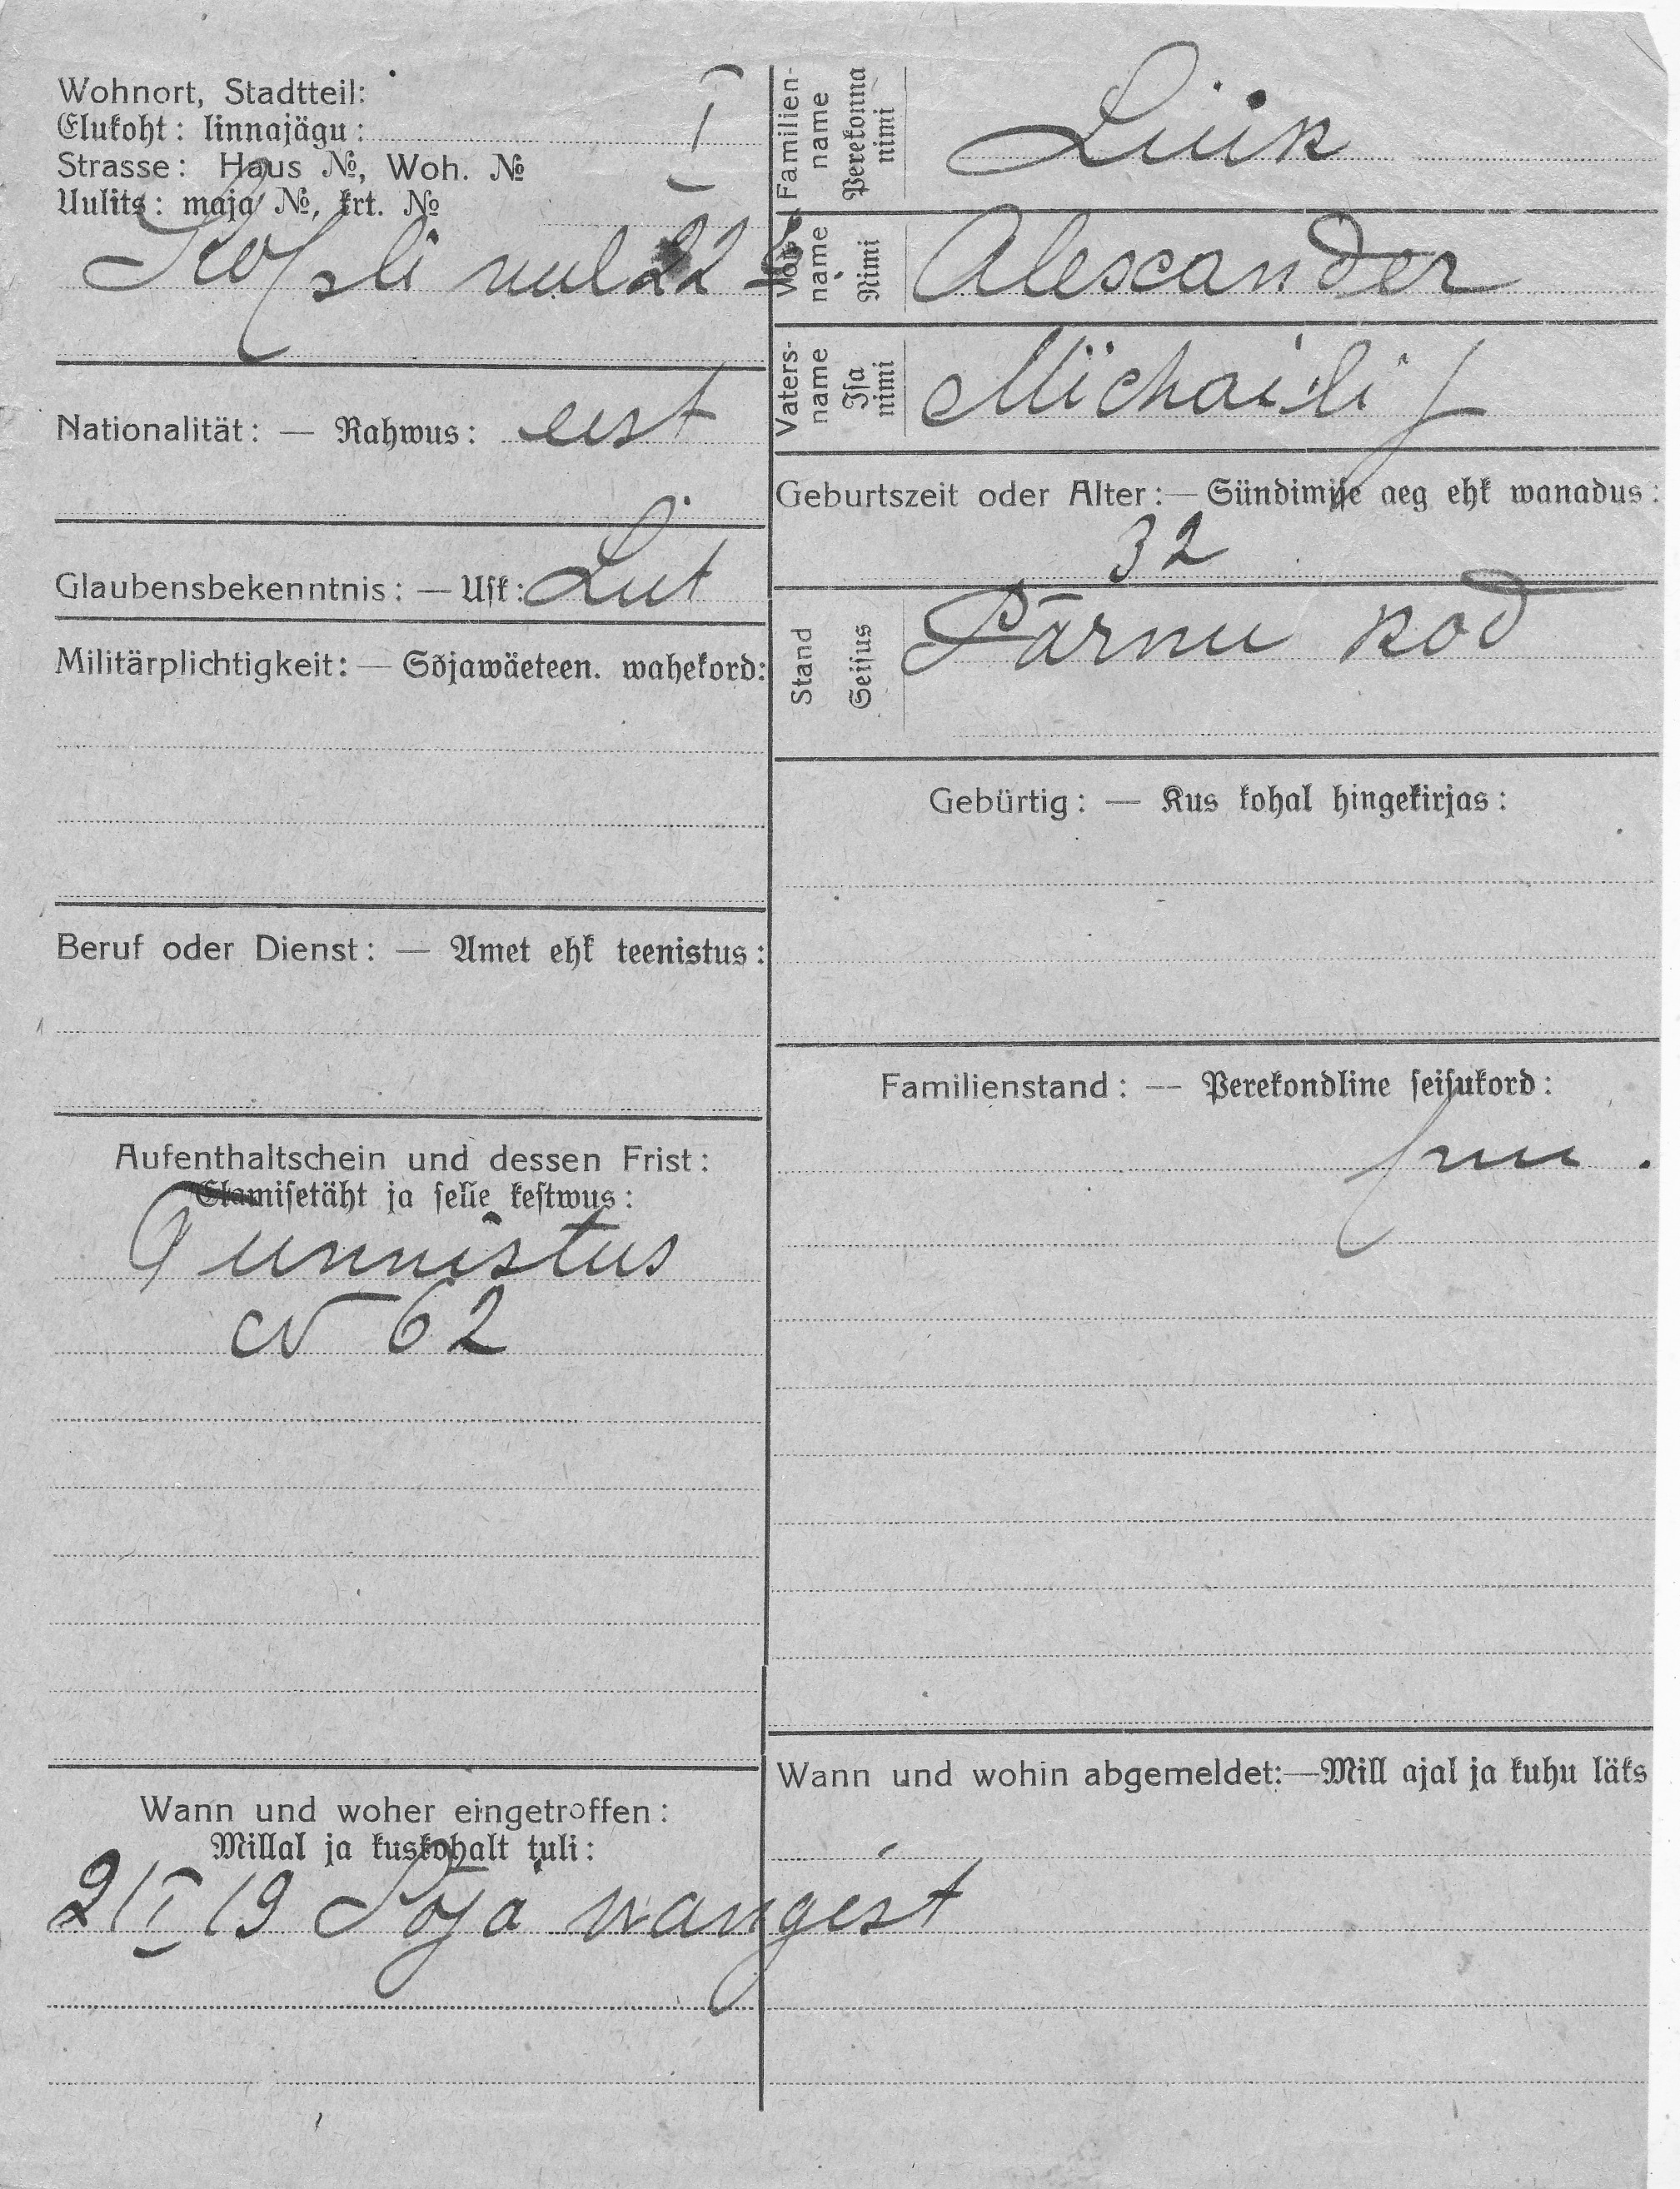 Wohnort, Stadtteil:
Elukoht: linnajägu: I
Strasse: Haus №, Woh. №
Uulits: maja №, krt. №
uul 22
Nationalität: — Rahwus: eest
Glaubensbekenntnis: — Usk: Lut
Militärplichtigkeit: — Sõjawäeteen. wahekord:
Beruf oder Dienst: — Amet ehk teenistus:
Aufenthaltschein und dessen Frist:
Elamisetäht ja selle kestwus:
Tunnistus
N 62
Wann und woher eingetroffen:
Millal ja kuskohalt tuli:
2/I 19 Sõja wangist
Familien-name Perekonna nimi Luik
Vor-name Nimi Alexander
Vaters-name Isa nimi Michaili p
Geburtszeit oder Alter: — Sündimise aeg ehk wanadus:
32
Stand Seisus Pärnu kod
Gebürtig: — Kus kohal hingekirjas:
Familienstand: — Perekondline seisukord:
Wann und wohin abgemeldet: — Mill ajal ja kuhu läks